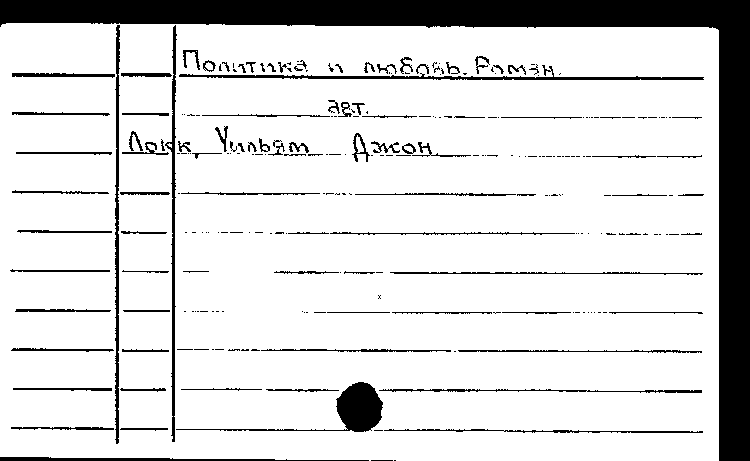 Политика и любовь. Роман.
авт.
Локк, Уильям Джон